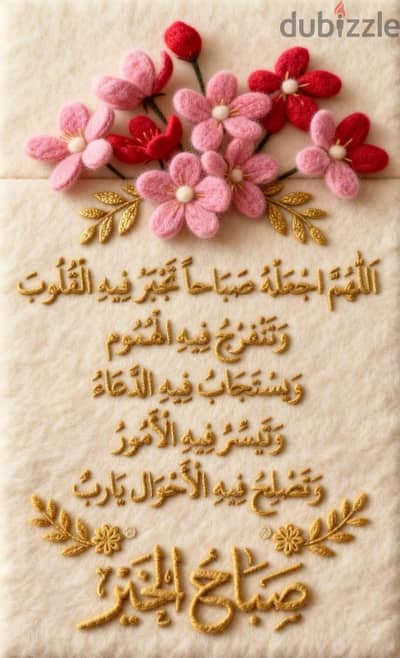 dubizzle
اَللّهُمَّ اجْعَلْهُ صَبَاحاً تُجْبَرُ فِيهِ الْقُلُوبَ
وَتَنْفَرِجُ فِيهِ الْهُمُوم
وَيسْتَجَابُ فِيهِ الدَّعَاءُ
وَتَيسَّرُ فِيهِ الْأَمُورُ
وَتَصْلحُ فِيهِ الْأَحْوَال يَاربُ
صِبَاحُ الخَيْرَ